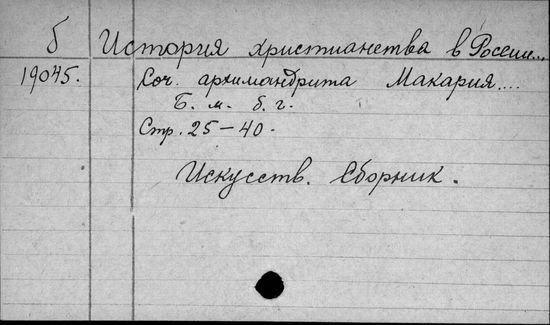 б История христианства в России...
19045. Соч. архимандрита Макария....
Б. м. б. г.
Стр. 25-40.
Искусств. Сборник.